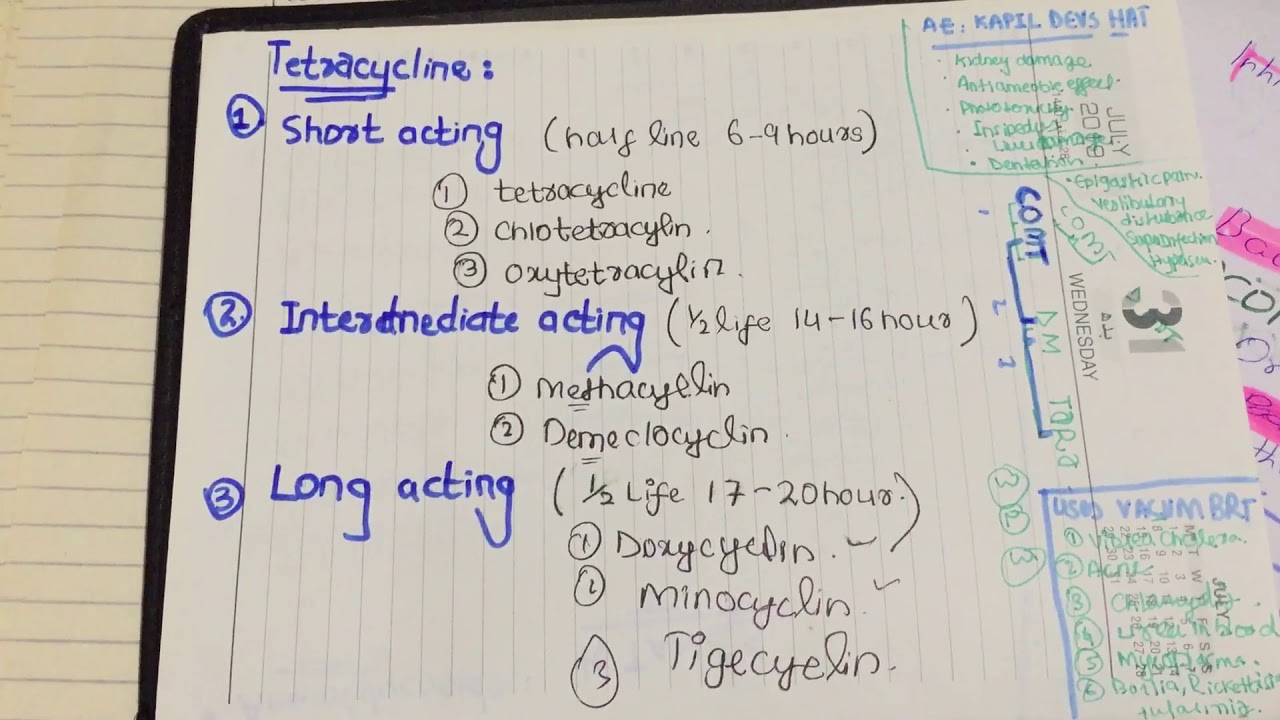 Tetracycline:
① Short acting (half line 6-9 hours)
① tetracycline
② Chlotetracylin.
③ Oxytetracylin.
② Interdmediate acting (1/2 life 14-16 hour)
① Methacyclin
② Demeclocyclin.
③ Long acting (1/2 Life 17-20 hour.)
① Doxycyclin.
② Minocyclin.
③ Tigecyclin.
AE: KAPIL DEVS HAT
Kidney damage
Antianaboli effect
Phototoxicity
Insipedus
Dentation
Epigastric pain.
Vestibulary
disturbance
Supa Infection
JULY
2019
COMT
COM
DM
TORD
31
WEDNESDAY
3
2
3
USED VACUUM BRT
① Vibrea Cholera.
② Acne
③
④ Urea in blood
⑤ Mycoplasma.
⑥ Borilia, Rickettisia
tularimia.
JULY
Inh
Bac